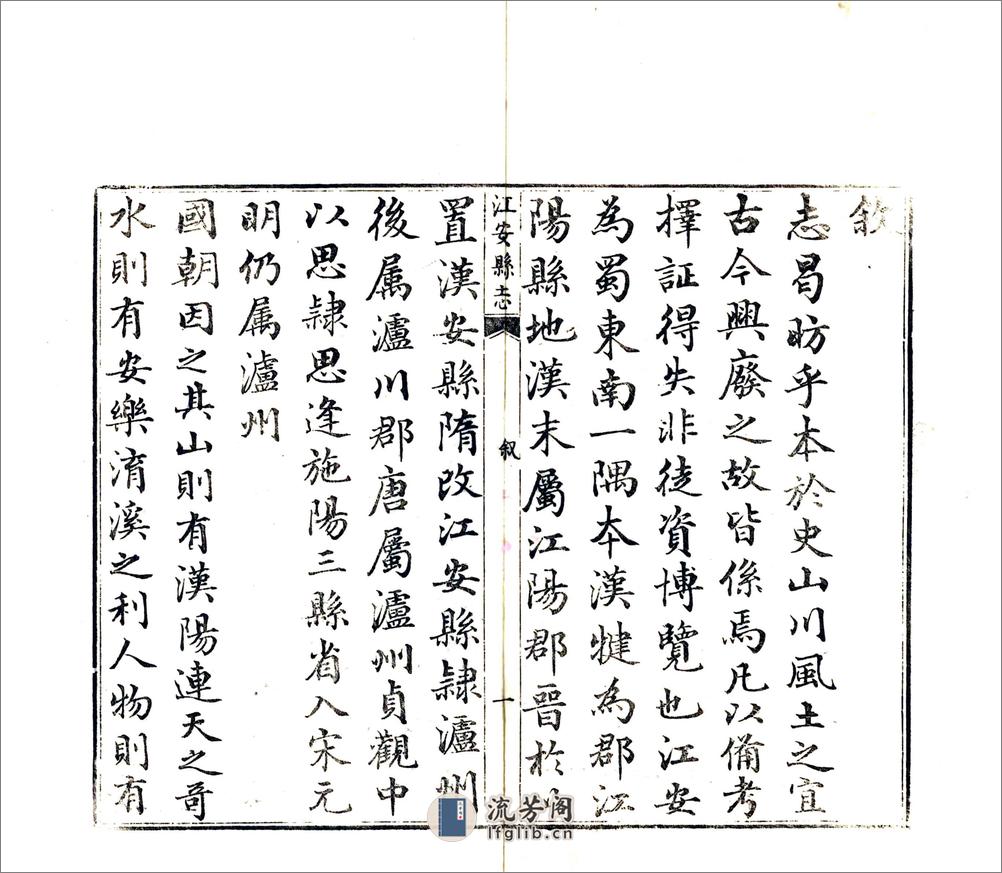 敘
志曷昉乎本於史山川風土之宜
古今興廢之故皆係焉凡以備考
擇証得失非徒資博覽也江安
為蜀東南一隅本漢犍為郡江
陽縣地漢末屬江陽郡晉於
江安縣志
叙
一
置漢安縣隋改江安縣隷瀘州
後属瀘川郡唐屬瀘州貞觀中
以思隷思逢施陽三縣省入宋元
明仍属瀘州
國朝因之其山則有漢陽連天之奇
水則有安樂淯溪之利人物則有
流芳阁
lfglib.cn